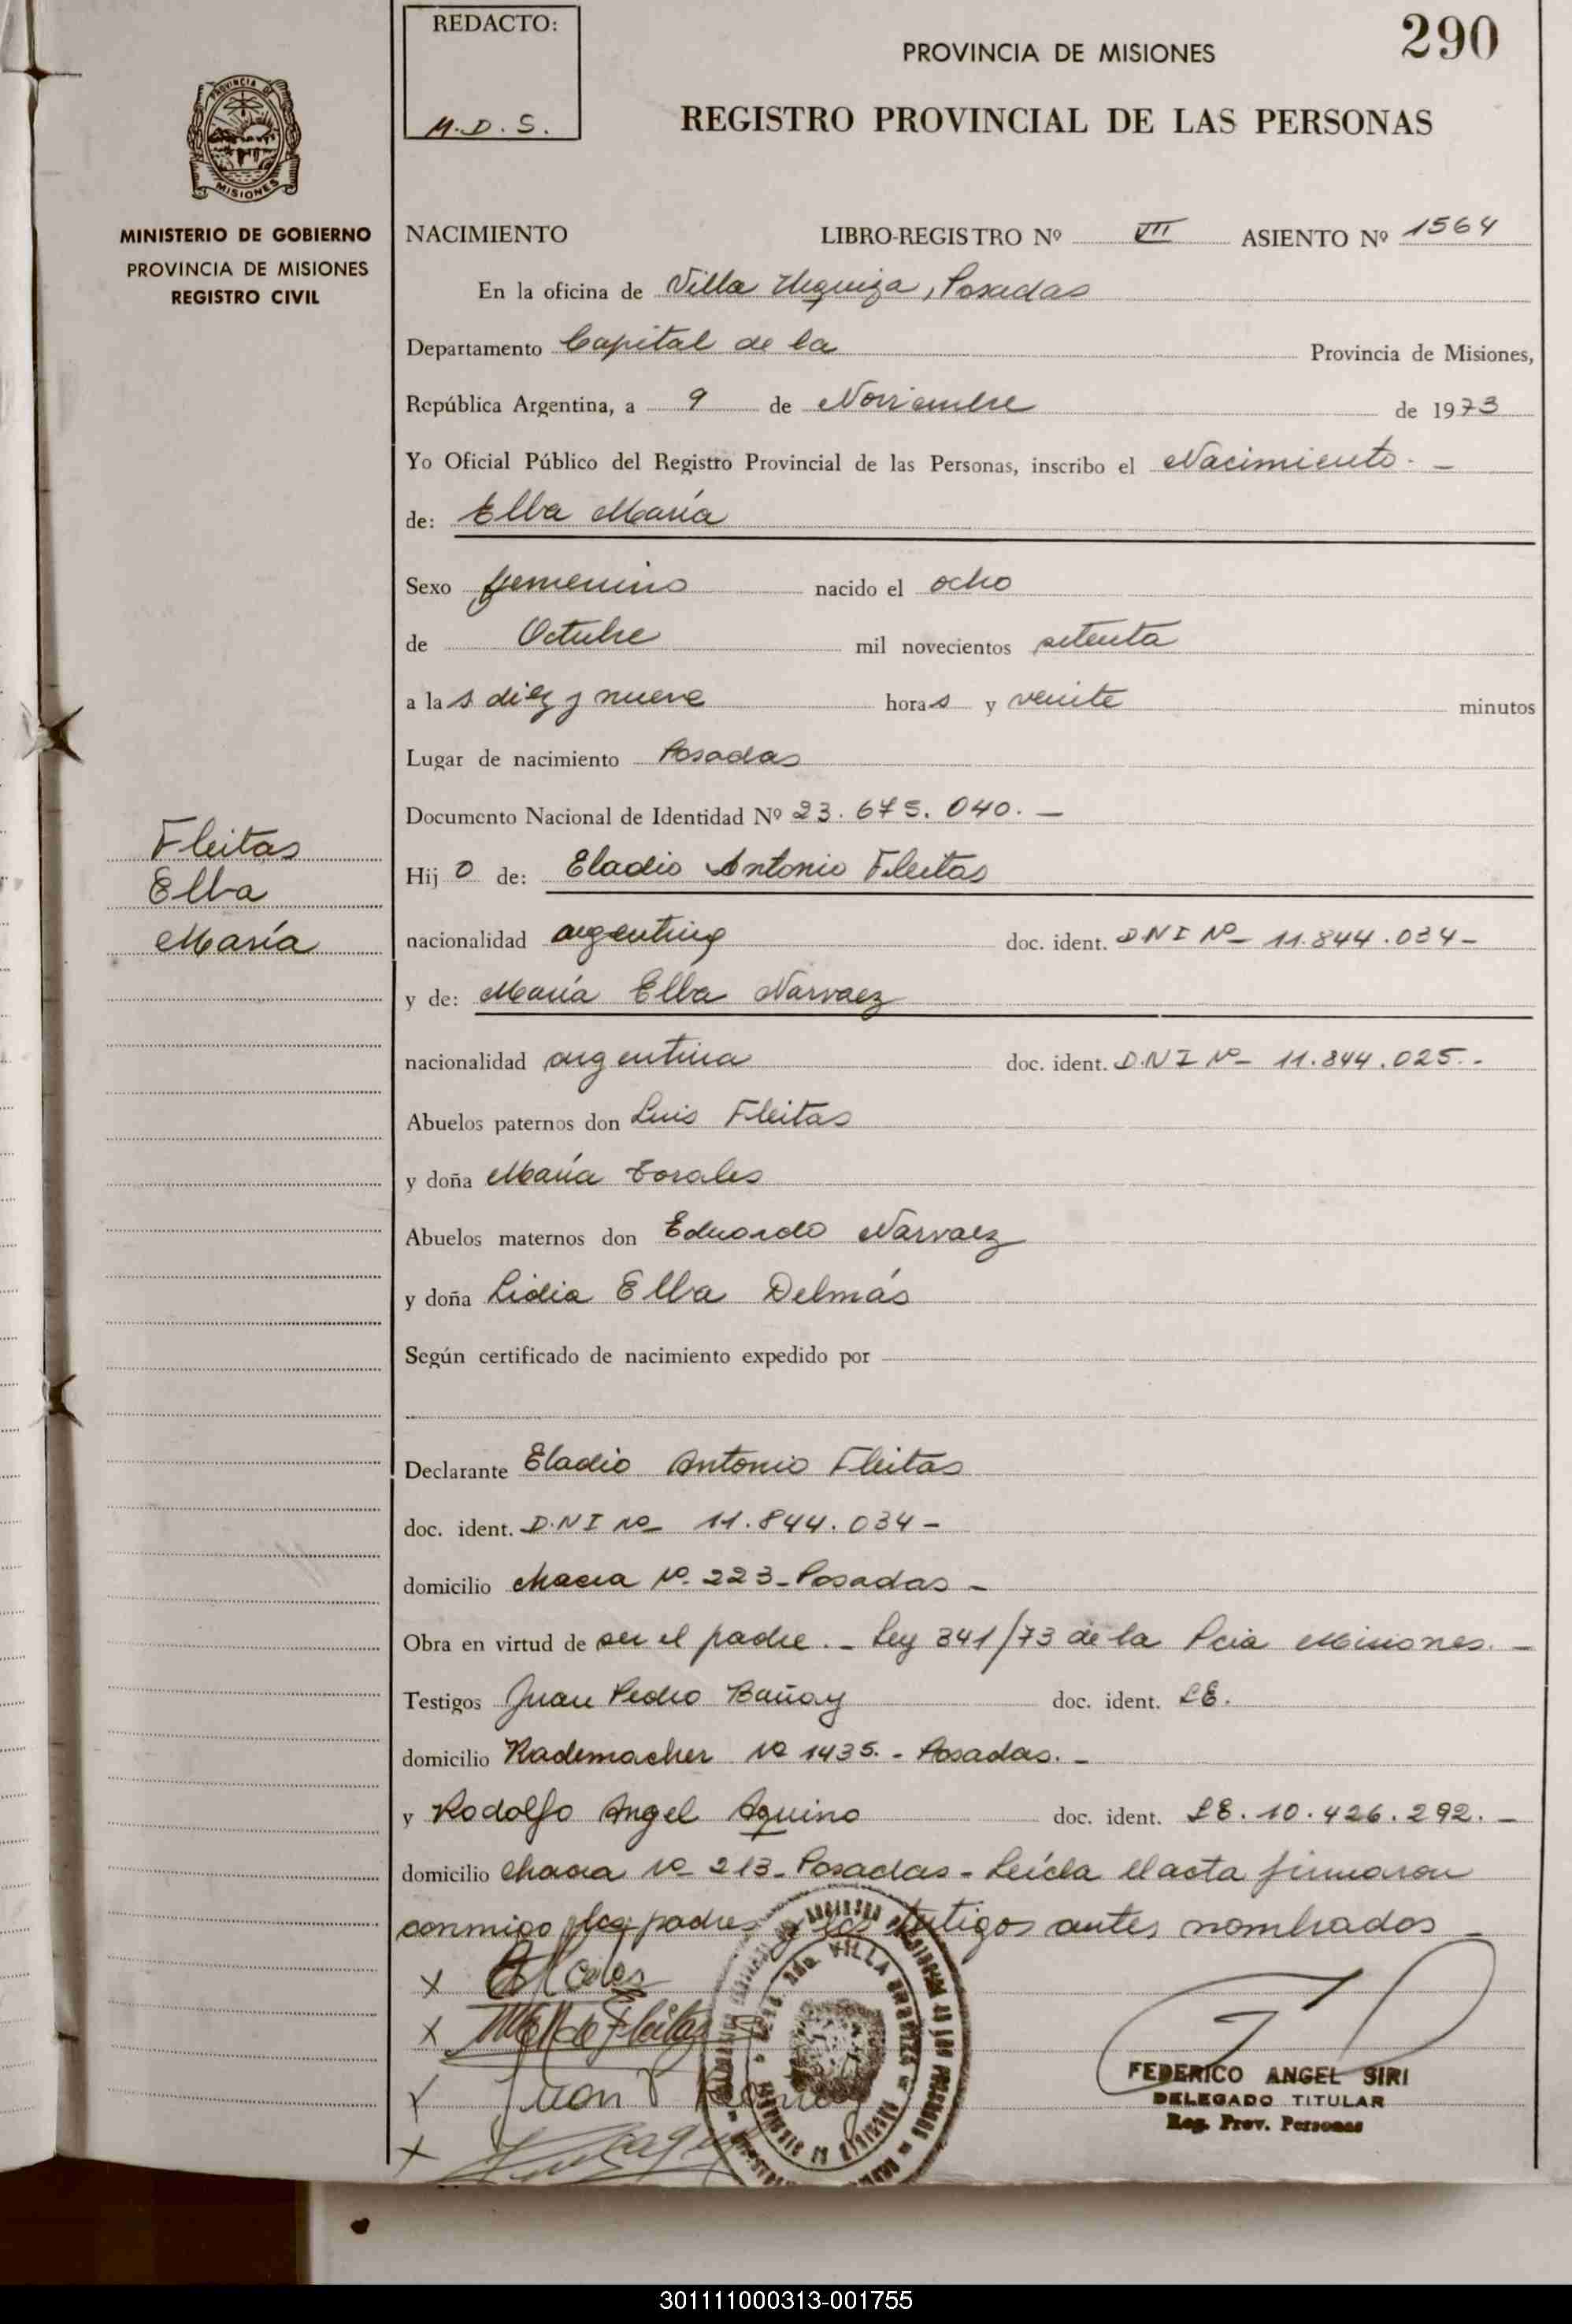 REDACTO:
M.D.S.
290
PROVINCIA DE MISIONES
REGISTRO PROVINCIAL DE LAS PERSONAS
PROVINCIA DE
MISIONES
MINISTERIO DE GOBIERNO
PROVINCIA DE MISIONES
REGISTRO CIVIL
NACIMIENTO LIBRO-REGISTRO Nº VII ASIENTO Nº 1564
En la oficina de Villa Urquiza, Posadas
Departamento Capital de la Provincia de Misiones,
República Argentina, a 9 de Noviembre de 1973
Yo Oficial Público del Registro Provincial de las Personas, inscribo el Nacimiento. -
de: Elba María
Sexo femenino nacido el ocho
de Octubre mil novecientos setenta
a las diez y nueve horas y veinte minutos
Lugar de nacimiento Posadas
Documento Nacional de Identidad Nº 23.675.040. -
Fleitas
Elba
María
Hijo de: Eladio Antonio Fleitas
nacionalidad argentina doc. ident. DNI Nº 11.844.034-
y de: María Elba Narvaez
nacionalidad argentina doc. ident. D.N.I Nº 11.844.025.-
Abuelos paternos don Luis Fleitas
y doña María Torales
Abuelos maternos don Eduardo Narvaez
y doña Lidia Elba Delmás
Según certificado de nacimiento expedido por
Declarante Eladio Antonio Fleitas
doc. ident. D.N.I Nº 11.844.034-
domicilio chacra Nº 223-Posadas-
Obra en virtud de ser el padre.- Ley 341/73 de la Pcia Misiones.-
Testigos Juan Pedro Bañay doc. ident. LE.
domicilio Rademacher Nº 1435.- Posadas.-
y Rodolfo Angel Aquino doc. ident. LE. 10.426.292.-
domicilio chacra Nº 213-Posadas- Leída el acta firmaron
conmigo los padres y los testigos antes nombrados
x
x de Fleitas
x Juan P
x
VILLA URQUIZA
FEDERICO ANGEL SIRI
DELEGADO TITULAR
Reg. Prov. Personas
301111000313-001755